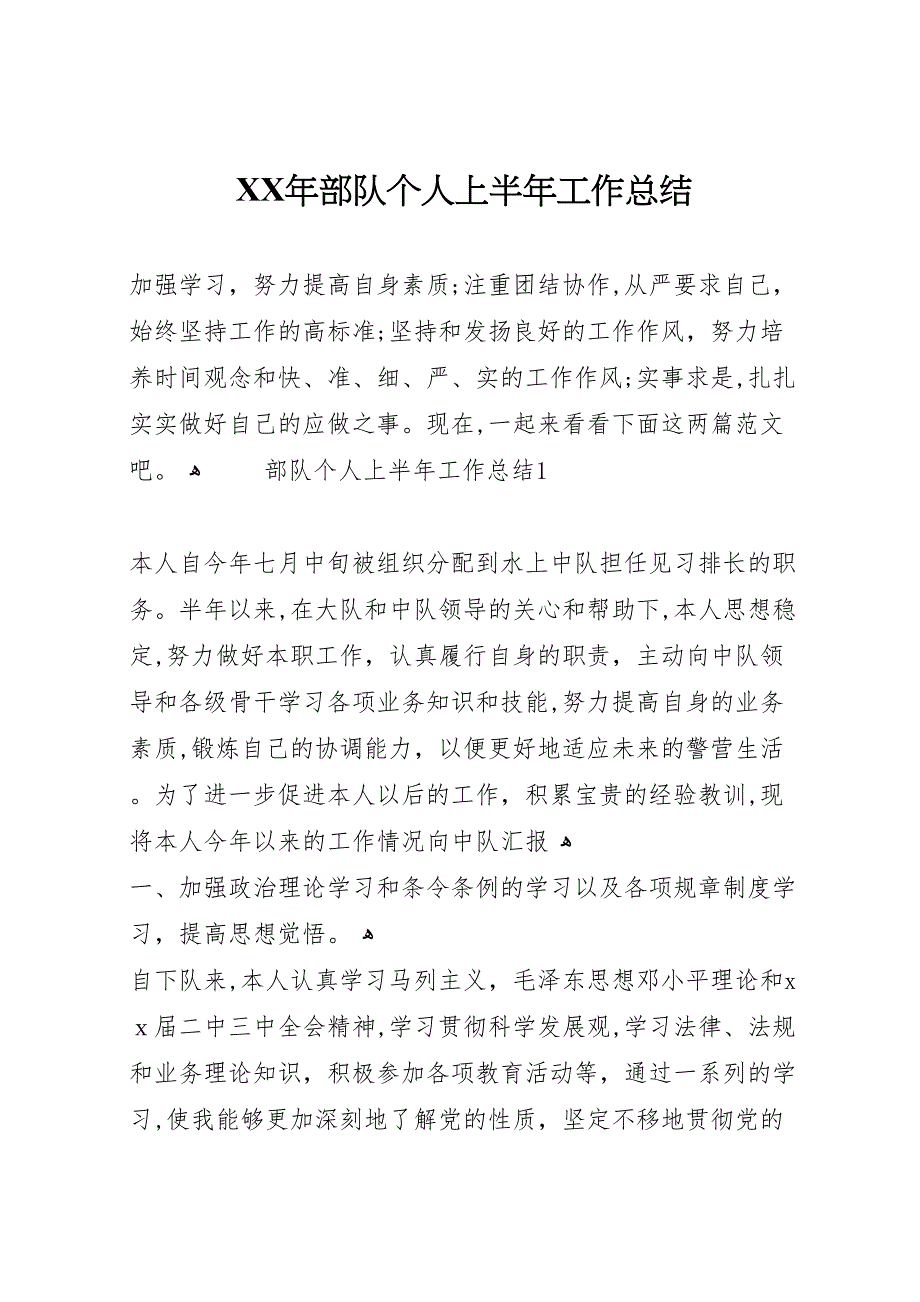 XX年部队个人上半年工作总结
加强学习，努力提高自身素质;注重团结协作,从严要求自己，
始终坚持工作的高标准;坚持和发扬良好的工作作风，努力培
养时间观念和快、准、细、严、实的工作作风;实事求是,扎扎
实实做好自己的应做之事。现在,一起来看看下面这两篇范文
吧。 ﻫ 部队个人上半年工作总结1
本人自今年七月中旬被组织分配到水上中队担任见习排长的职
务。半年以来,在大队和中队领导的关心和帮助下,本人思想稳
定,努力做好本职工作，认真履行自身的职责，主动向中队领
导和各级骨干学习各项业务知识和技能,努力提高自身的业务
素质,锻炼自己的协调能力，以便更好地适应未来的警营生活
。为了进一步促进本人以后的工作，积累宝贵的经验教训,现
将本人今年以来的工作情况向中队汇报 ﻫ
一、加强政治理论学习和条令条例的学习以及各项规章制度学
习，提高思想觉悟。 ﻫ
自下队来,本人认真学习马列主义，毛泽东思想邓小平理论和x
x届二中三中全会精神,学习贯彻科学发展观,学习法律、法规
和业务理论知识，积极参加各项教育活动等，通过一系列的学
习,使我能够更加深刻地了解党的性质，坚定不移地贯彻党的